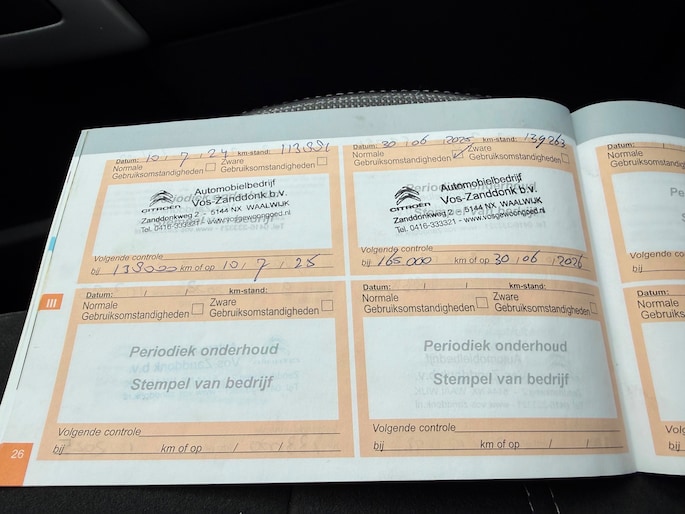 Datum: 10 / 7 / 24 km-stand: 113.991
Normale Gebruiksomstandigheden
Zware Gebruiksomstandigheden
CITROËN
Automobielbedrijf
Vos-Zanddonk b.v.
Zanddonkweg 2 - 5144 NX WAALWIJK
Tel. 0416-333321 - www.vosgewoongoed.nl
Volgende controle
bij 139000 km of op 10 / 7 / 25
Datum: 30 / 06 / 2025 km-stand: 139263
Normale Gebruiksomstandigheden
Zware Gebruiksomstandigheden
CITROËN
Automobielbedrijf
Vos-Zanddonk b.v.
Zanddonkweg 2 - 5144 NX WAALWIJK
Tel. 0416-333321 - www.vosgewoongoed.nl
Volgende controle
bij 165000 km of op 30 / 06 / 2026
III
Datum: / / km-stand:
Normale Gebruiksomstandigheden
Zware Gebruiksomstandigheden
Periodiek onderhoud
Stempel van bedrijf
Volgende controle
bij km of op / /
Datum: / / km-stand:
Normale Gebruiksomstandigheden
Zware Gebruiksomstandigheden
Periodiek onderhoud
Stempel van bedrijf
Volgende controle
bij km of op / /
26
Datum:
Normale
Gebruiksom
Volgende co
bij
Datum:
Normale
Gebruikso
Volgende
bij